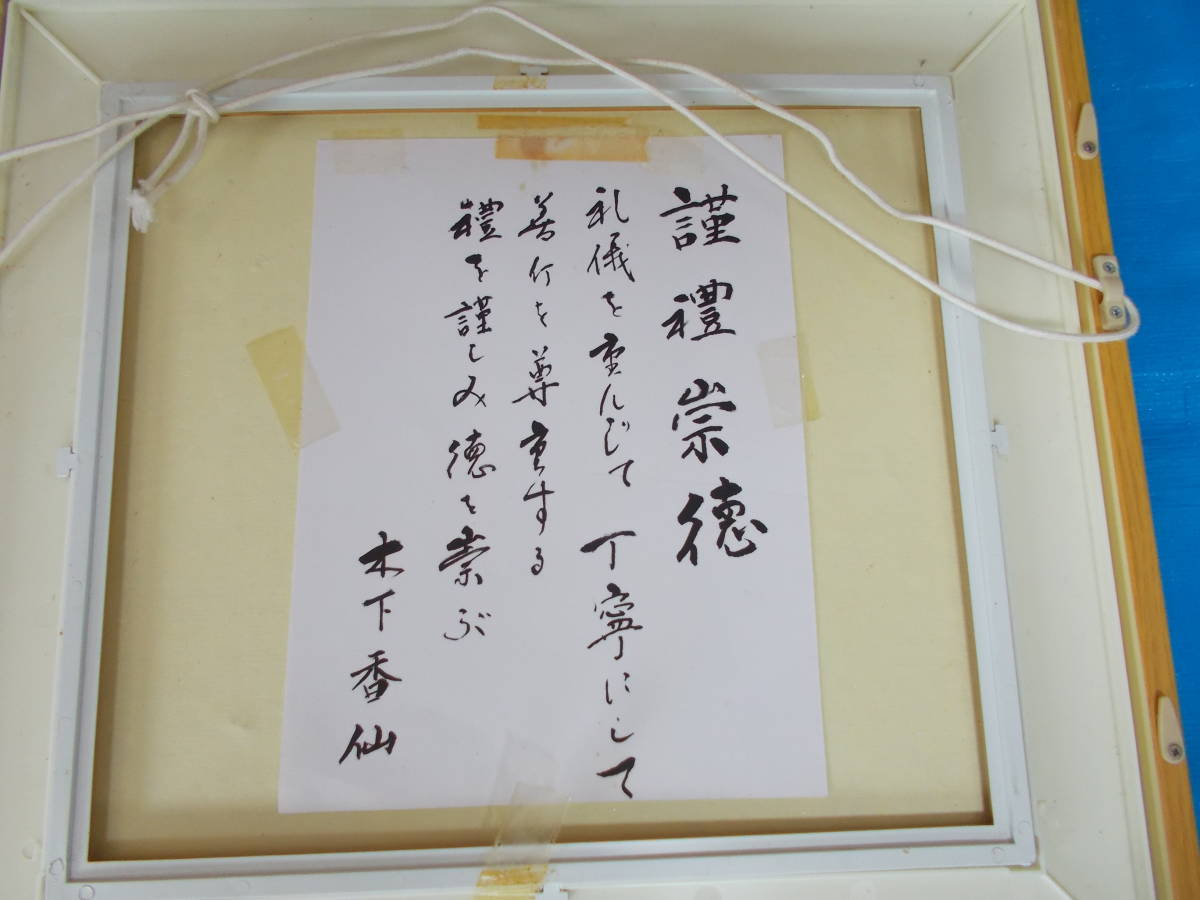 謹禮崇徳
礼儀を重んじて 丁寧にして
善行を尊重する
禮を謹しみ 徳を崇ぶ
木下香仙